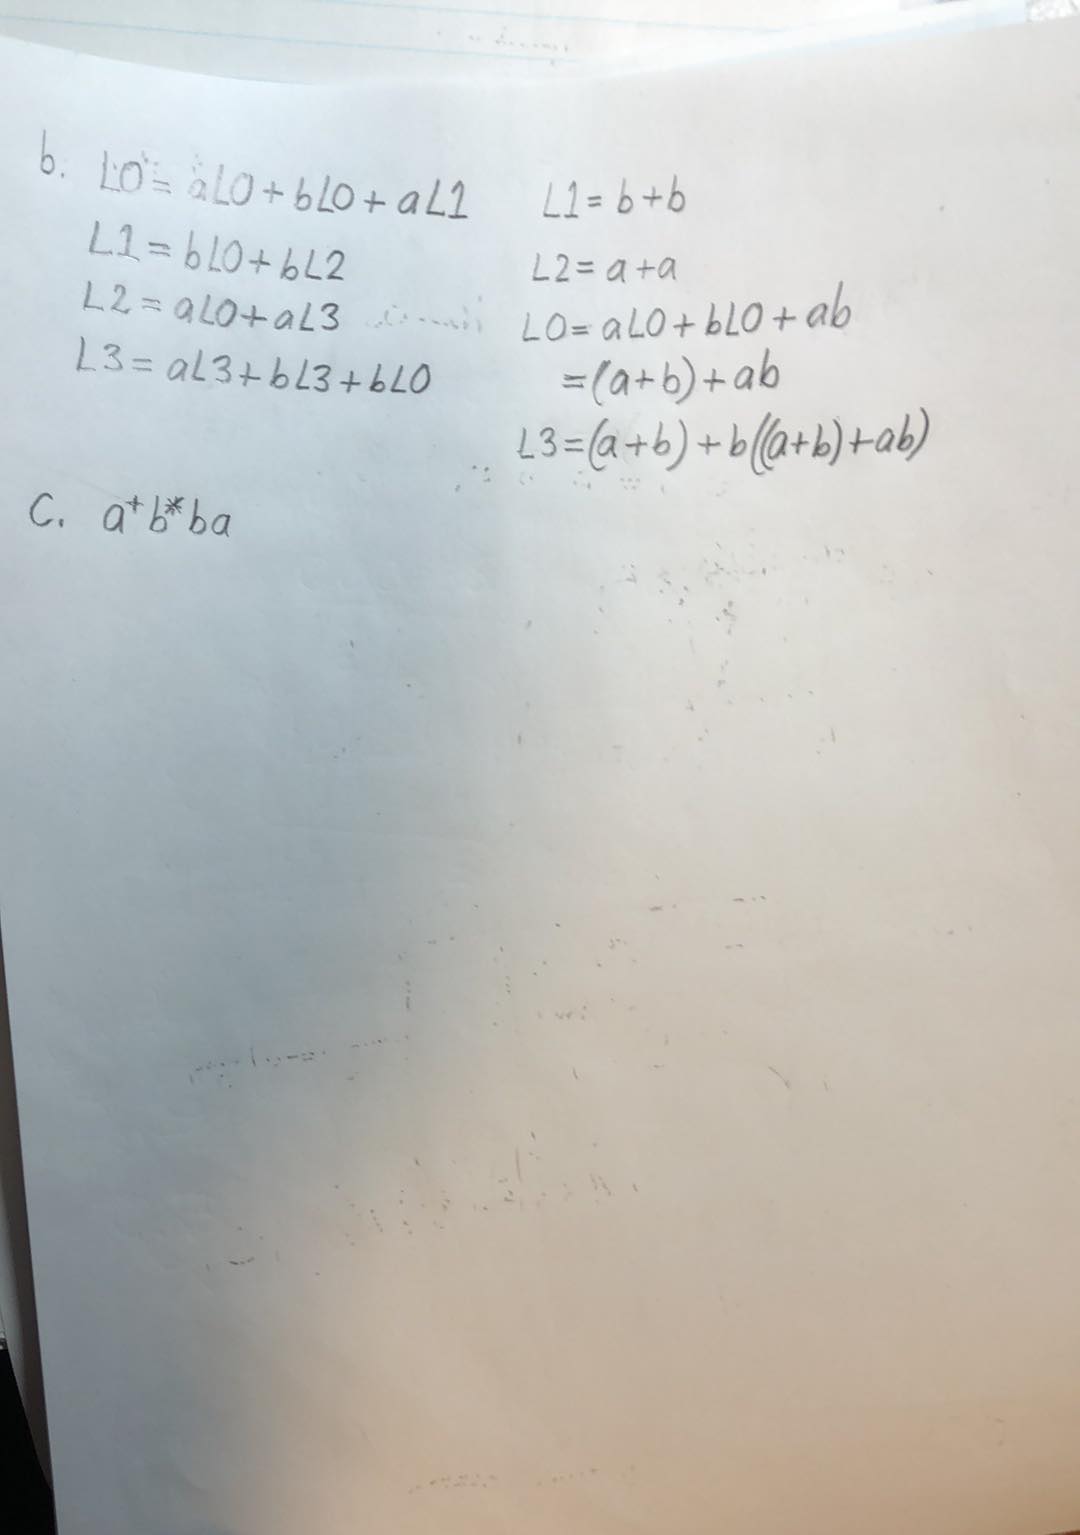 b. L0 = aL0 + bL0 + aL1
L1 = bL0 + bL2
L2 = aL0 + aL3
L3 = aL3 + bL3 + bL0
L1 = b + b
L2 = a + a
L0 = aL0 + bL0 + ab
= (a + b) + ab
L3 = (a + b) + b((a + b) + ab)
C. a⁺b*ba